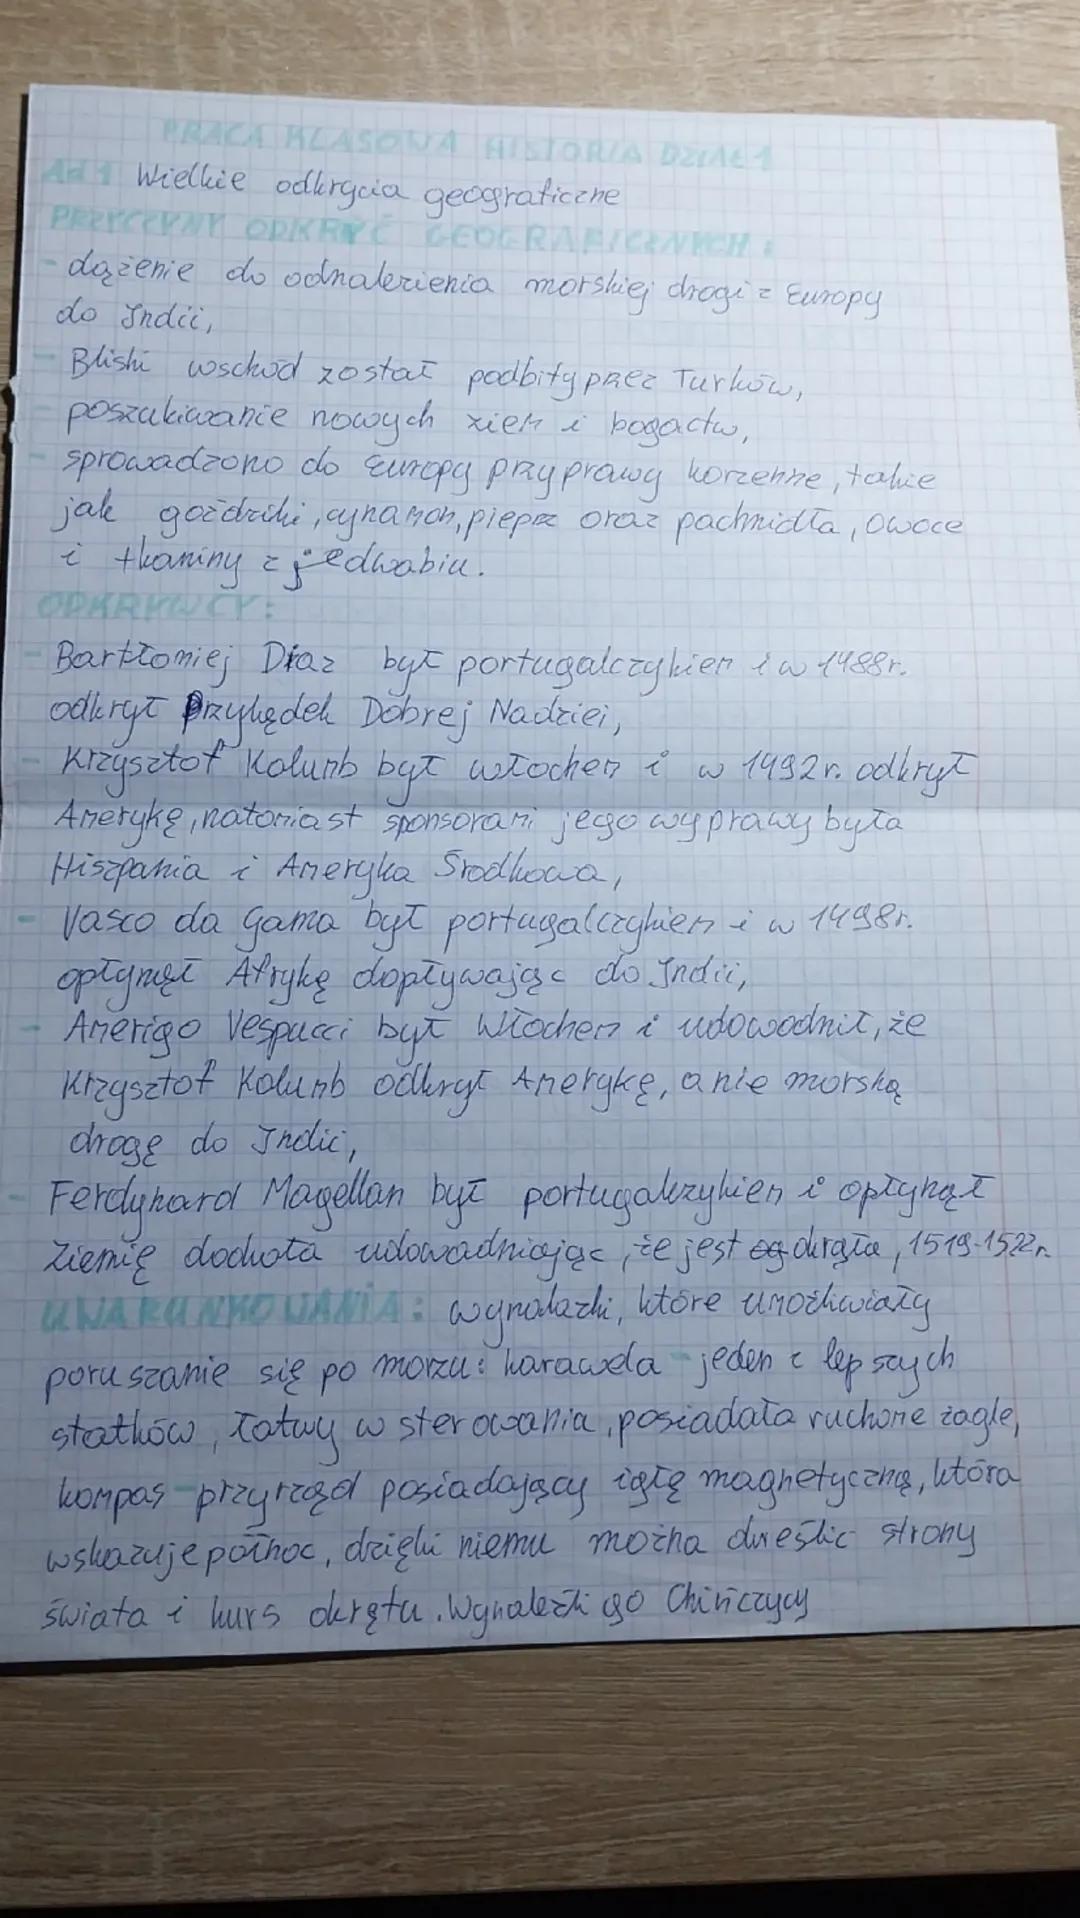 PRACA KLASOWA HISTORIA DZIAŁ 1
Ad 1 Wielkie odkrycia geograficzne
PRZYCZYNY ODKRYĆ GEOGRAFICZNYCH:
- dążenie do odnalezienia morskiej drogi z Europy
do Indii,
- Bliski wschód został podbity przez Turków,
- poszukiwanie nowych ziem i bogactw,
- sprowadzono do Europy przyprawy korzenne, takie
jak goździki, cynamon, pieprz oraz pachnidła, owoce
i tkaniny z jedwabiu.
ODKRYWCY:
- Bartłomiej Diaz był portugalczykiem i w 1488r.
odkrył Przylądek Dobrej Nadziei,
- Krzysztof Kolumb był włochem i w 1492r. odkrył
Amerykę, natomiast sponsorami jego wyprawy była
Hiszpania i Ameryka Środkowa,
- Vasco da Gama był portugalczykiem i w 1498r.
opłynął Afrykę dopływając do Indii,
- Amerigo Vespucci był Włochem i udowodnił, że
Krzysztof Kolumb odkrył Amerykę, a nie morską
drogę do Indii,
- Ferdynand Magellan był portugalczykiem i opłynął
Ziemię dookoła udowadniając, że jest okrągła, 1519-1522r.
UWARUNKOWANIA: wynalazki, które umożliwiały
poruszanie się po morzu: karawela - jeden z lepszych
statków, łatwy w sterowania, posiadała ruchome żagle,
kompas - przyrząd posiadający igłę magnetyczną, która
wskazuje północ, dzięki niemu można określić strony
świata i kurs okrętu. Wynaleźli go Chińczycy